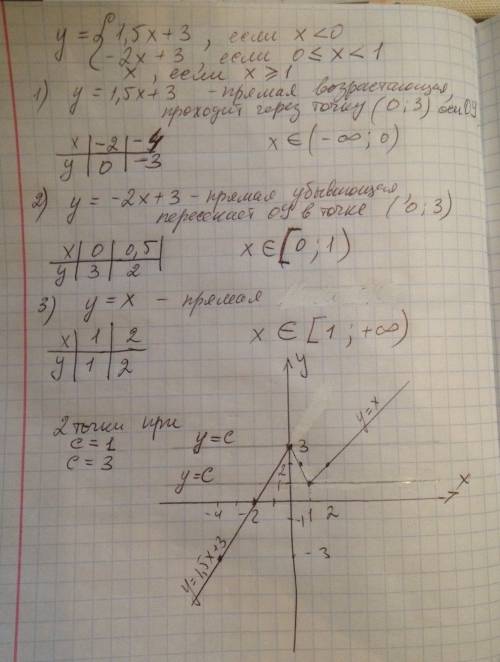 y = { 1,5x+3 , если x<0
-2x+3 , если 0≤x<1
x , если x≥1
1) y=1,5x+3 - прямая возрастающая,
проходит через точку (0;3) оси Oy
x | -2 | -4
y | 0 | -3
x ∈ (-∞; 0)
2) y = -2x+3 - прямая убывающая,
пересекает OY в точке (0;3)
x | 0 | 0,5
y | 3 | 2
x ∈ [0; 1)
3) y = x - прямая
x | 1 | 2
y | 1 | 2
x ∈ [1; +∞)
2 точки при
c = 1
c = 3
y
y=x
y=c
3
2
y=c
1
x
-4
-2
-1
1
2
-3
y=1,5x+3